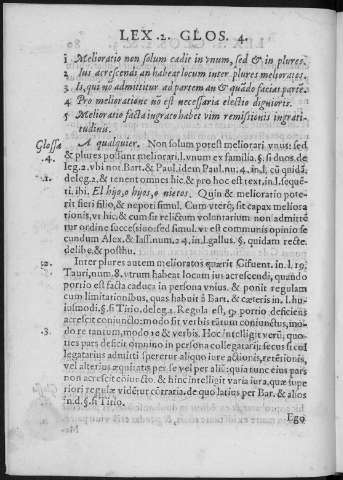 LEX. 2. GLOS. 4.
1 Melioratio non solum cadit in vnum, sed & in plures.
2 Ius acrescendi an habeat locum inter plures melioratos.
3 Is, qui nō admittitur ad partem an & quādo faciat partē.
4 Pro melioratione nō est necessaria electio dignioris.
5 Melioratio facta ingrato habet vim remissionis ingrati-
tudinis.
Glossa A qualquier. Non solum potest meliorari vnus: sed
.4. & plures possunt meliorari. l. vnum ex familia. §. si duos. de
leg. 2. vbi not. Bart. & Paul. idem Paul. nu. 4. in. l. cū quidā.
.1. deleg. 2. & tenent omnes hic & pro hoc est text. in l. sequē-
ti. ibi. El hijo, o hijos, o nietos. Quin & melioratio pote-
rit fieri filio, & nepoti simul. Cum vterq; sit capax meliora
tionis, vt hic. & cum sit relictum voluntarium non admittē
tur ordine successiuo: sed simul. vt est communis opinio se
cundum Alex. & Iass. num. 24. in l. gallus. §. quidam recte.
de libe. & posthu.
.2. Inter plures autem melioratos quærit Cifuent. in l. 19.
Tauri, num. 8. vtrum habeat locum ius acrescendi, quando
portio est facta caduca in persona vnius, & ponit regulam
cum limitationibus, quas habuit à Bart. & cæteris in l. hu-
iusmodi. §. si Titio. deleg. 1. Regula est, q̄ portio deficiens
acrescit coniuncto: modo sit verbis tātum coniunctus, mo-
.3. do re tantum, modo re & verbis. Hoc intelligit verū, quo-
ties pars deficit omnino in persona collegatarij: secus si col
legatarius admitti speretur aliquo iure actionis, retētionis,
vel alterius æquitatis per se vel per aliū: quia tunc eius pars
non acrescit cōiuncto. & hinc intelligit varia iura, quæ supe
riori regulæ vidētur cōtraria. de quo latius per Bar. & alios
in d. §. si Titio.
Ego